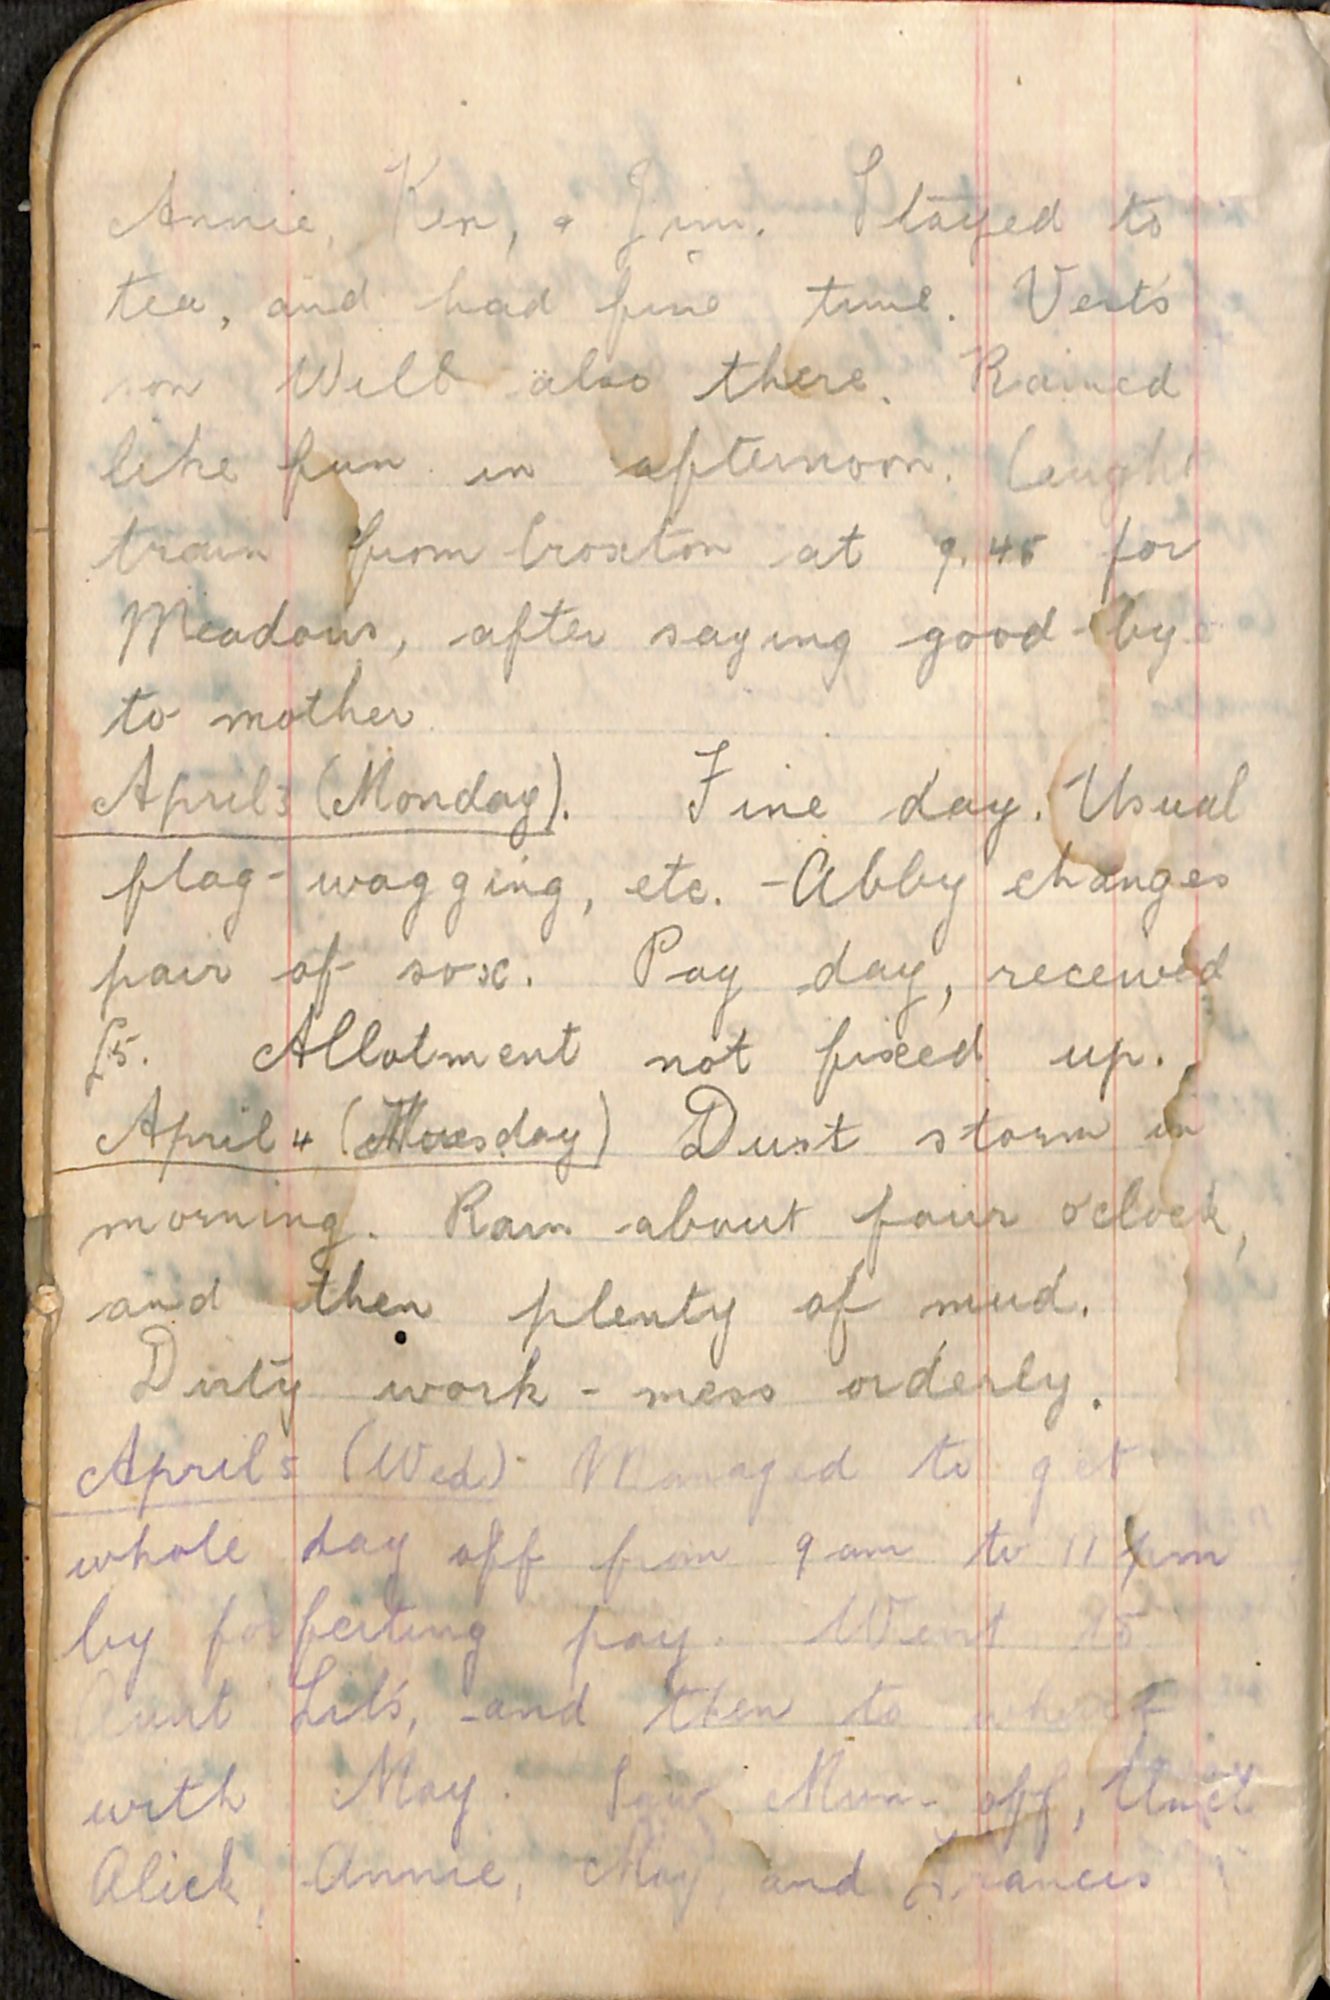 Annie, Ken, & Jim. Stayed to
tea, and had fine time. Vert's
son Will also there. Rained
like fun in afternoon. Caught
train from Croxton at 9.45 for
Meadows, after saying good-bye
to mother
April 3 (Monday). Fine day. Usual
flag-wagging, etc. - Abby changes
pair of sox. Pay day, received
£5. Allotment not fixed up.
April 4 (Tuesday) Dust storm in
morning. Rain about four o'clock,
and then plenty of mud.
Dirty work - mess orderly.
April 5 (Wed) Managed to get
whole day off from 9 am to 11 pm
by forfeiting pay. Went to
Aunt Lil's, and then to wharf
with May. Saw Mum off, Uncle
Alick, Annie, May, and Francis